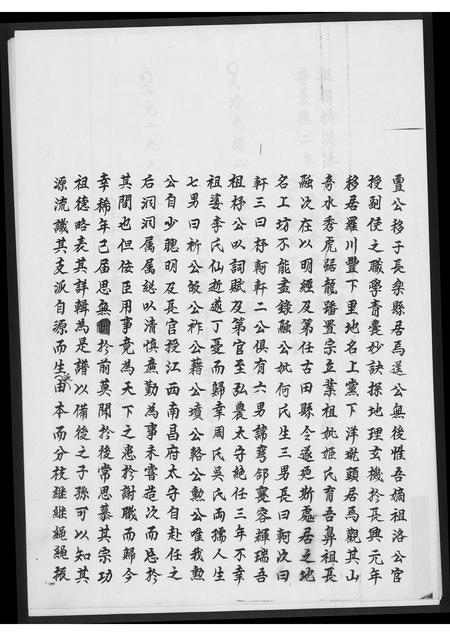 亶公移子長樂縣居馬送公無後惟吾嫡祖洛公官
授副使之職學青囊妙訣探地理玄機於長興元年
移居羅川豐下里地名上黨下洋墘頭居焉觀其山
奇水秀虎踞龍蟠置宗立業祖妣姬氏育吾鼻祖長
融次在以明經及第任古田縣令遂更斯處居之地
名工坊不能盡錄融公妣何氏生三男長曰軻次曰
軒三曰杼軻軒二公俱有六男諦鸞邻冀容輝瑞吾
祖杼公以詞賦及第官至弘農太守纔任三年不幸
祖婆李氏仙逝遂丁憂而歸幸周氏吳氏両孺人生
七男曰祈公皈公祚公藉公墳公輅公勲公唯我勲
公自少聰明及長官授江西南昌府太守自赴任之
后洞洞属属懿以清慎亷勤為事未嘗造次而忘於
其間也但佞臣用事竟為天下之患於謝職而歸今
幸稀年已届思無聞於前莫聞於後常思慕其宗功
祖德略表其詳輯為是譜以備後之子孫可以知其
源流識其支派自源而生派由本而分枝継継繩繩振